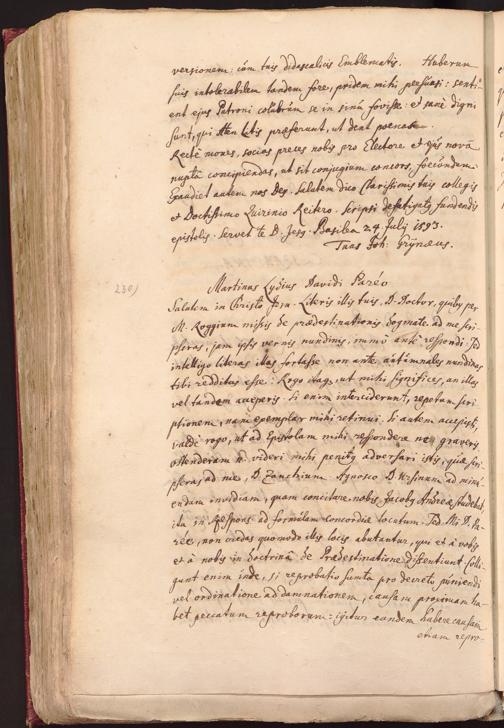 versionem: cùm tuis didascalicis Emblematis. Huberum
suis intolerabilem tandem fore, pridem mihi persuasi: senti-
ent ejus Patroni colubrum se in sinu fovisse: et sanè digni
sunt, qui litis praeferant, ut dent poenas.
Rectè mones, socias preces nobis pro Electore et ejus novâ
nuptâ concipiendas, ut sit conjugium concors, foecundum.
Exaudiet autem nos Deus. Salutem dico Clarissimis tuis collegis
et Doctissimo Quirinio Reutero. Scripsi defatigatus fundendis
epistolis. Servet te D. Jesus. Basilea 24 July 1593.
Tuus Joh: Grÿnaeus.
230)
Martinus Lydius Davidi Paréo
Salutem in Christo Jesu. Literis illis tuis, D. Doctor, quibus per
M. Roggium missis de praedestinationis dogmate ad me scri-
pseras, jam ipsis vernis nundinis, immò antè respondi. Sed
intelligo literas illas fortasse non ante autumnales nundinas
tibi redditas esse: Rogo itaque, ut mihi significes, an illas
vel tandem acceperis. Si enim interciderunt, repetam scri-
ptionem, nam exemplar mihi retinui. Si autem accepisti,
valdè rogo, ut ad Epistolam mihi respondere ne graveris
ostenderam n. videri mihi penitus adversari istis, quae scri-
pseras ad me, D. Zanchium. Agnosco D. Ursinum ad minu-
endam invidiam, quam concitare nobis Jacobus Andreae studebat,
ita in respons: ad formulam concordiae locutum. Sed Mi D. Pa-
rée, non credas quomodo illis locis abutantur, qui et à vobis
et à nobis in doctrina de Praedestinatione dissentiunt. Colli-
gunt enim inde, si reprobatio sumta pro decreto puniendi
vel ordinatione ad damnationem, causam proximam ha-
bet peccatum reproborum: igitur eandem habere causam
etiam repro-